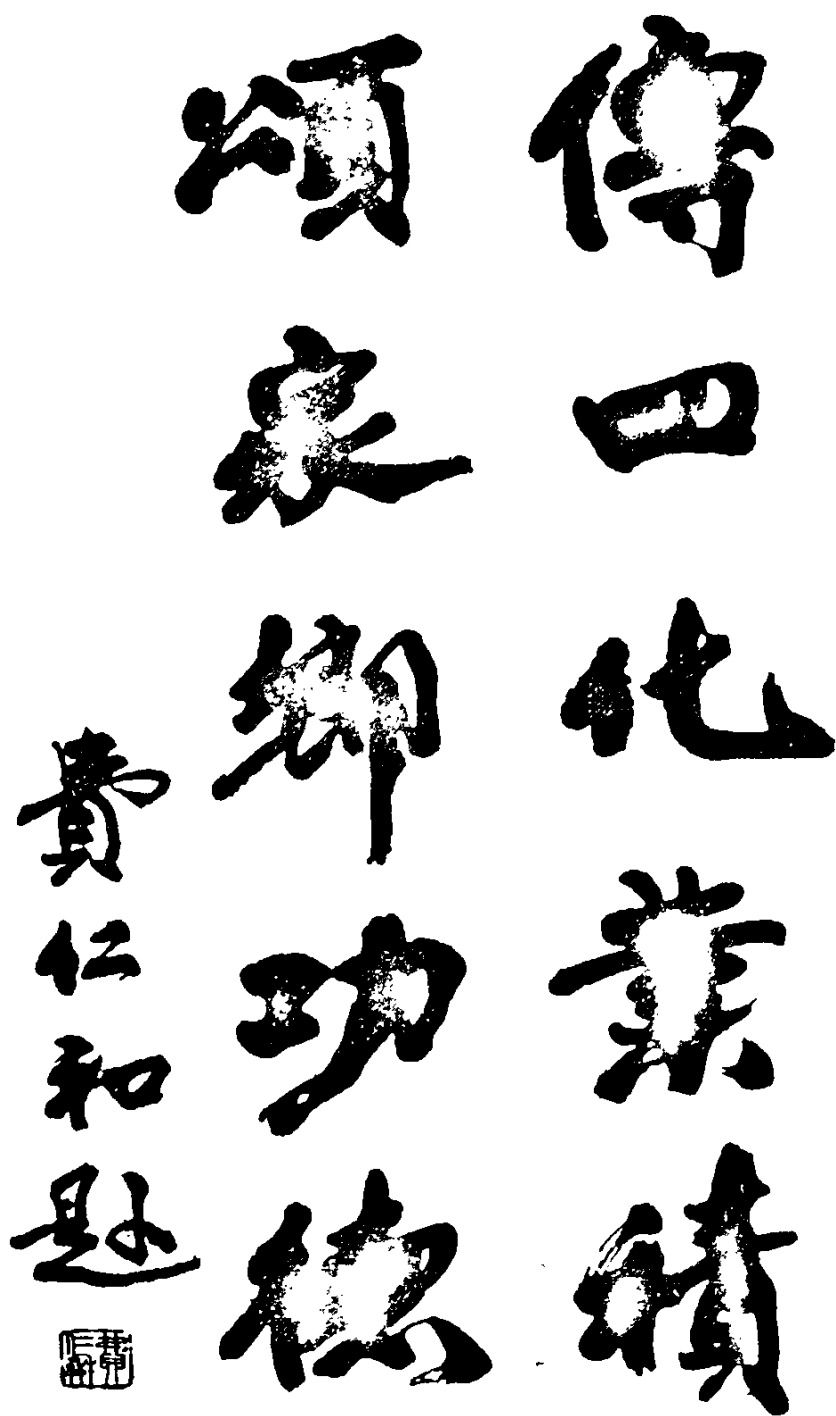 傳四化業積
頌家鄉功德
費仁和題